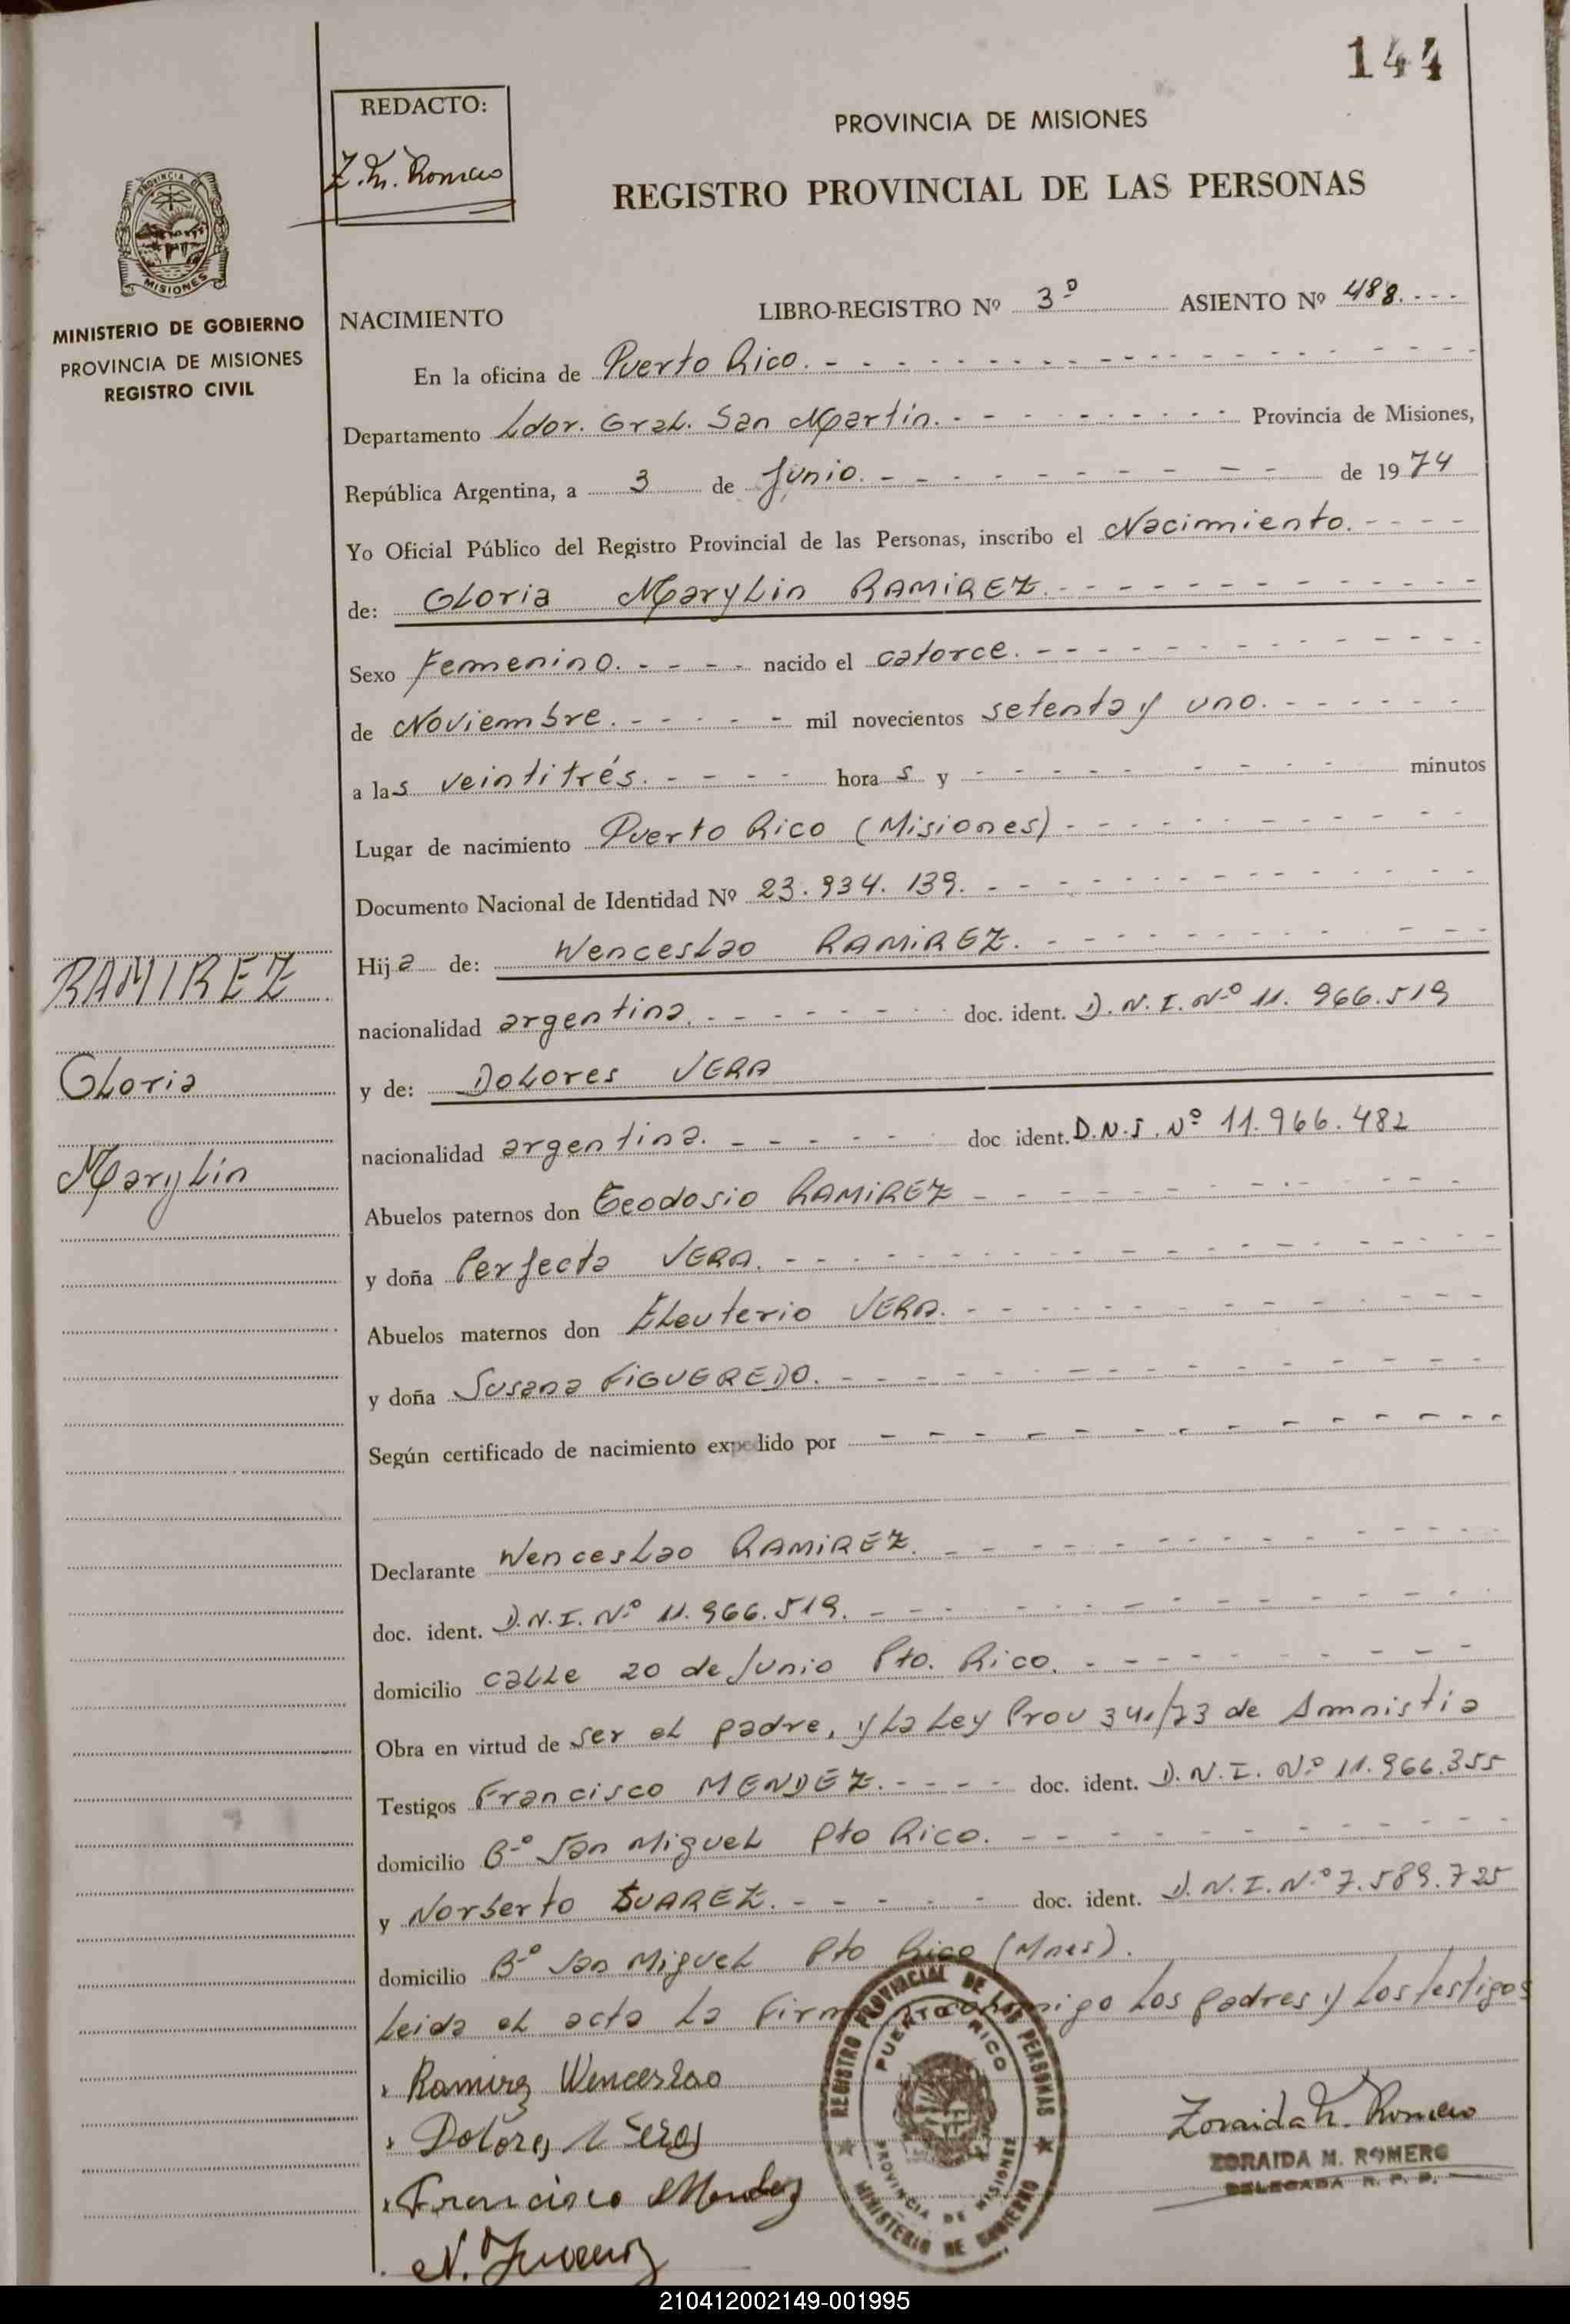 144
REDACTO:
Z. M. Romero
PROVINCIA DE MISIONES
REGISTRO PROVINCIAL DE LAS PERSONAS
PROVINCIA DE
MISIONES
MINISTERIO DE GOBIERNO
PROVINCIA DE MISIONES
REGISTRO CIVIL
NACIMIENTO LIBRO-REGISTRO Nº 3º ASIENTO Nº 488.---
En la oficina de Puerto Rico.
Departamento Ldor. Gral. San Martin. Provincia de Misiones,
República Argentina, a 3 de Junio. de 1974
Yo Oficial Público del Registro Provincial de las Personas, inscribo el Nacimiento.
de: Gloria Marylin RAMIREZ.
Sexo Femenino. nacido el catorce.
de Noviembre. mil novecientos setenta y uno.
a las veintitrés. horas y minutos
Lugar de nacimiento Puerto Rico (Misiones)
Documento Nacional de Identidad Nº 23.934.139.
Hija de: Wenceslao RAMIREZ.
nacionalidad argentina. doc. ident. D.N.I. Nº 11.966.519
y de: Dolores VERA
nacionalidad argentina. doc ident. D.N.I. Nº 11.966.482
Abuelos paternos don Teodosio RAMIREZ
y doña Perfecta VERA.
Abuelos maternos don Eleuterio VERA.
y doña Susana FIGUEREDO.
Según certificado de nacimiento expedido por
Declarante Wenceslao RAMIREZ.
doc. ident. D.N.I. Nº 11.966.519.
domicilio calle 20 de Junio Pto. Rico.
Obra en virtud de ser el padre, y la Ley Prov 341/73 de Amnistia
Testigos Francisco MENDEZ. doc. ident. D.N.I. Nº 11.966.355
domicilio Bº San Miguel Pto Rico.
y Norberto SUAREZ. doc. ident. D.N.I. Nº 7.589.725
domicilio Bº San Miguel Pto Rico (Mnes).
Leida el acta la firman conmigo los padres y los testigos
RAMIREZ
Gloria
Marylin
Ramirez Wenceslao
Dolores Vera
Francisco Mendez
N. Suarez
REGISTRO PROVINCIAL DE LAS PERSONAS
PUERTO RICO
PROVINCIA DE MISIONES
MINISTERIO DE GOBIERNO
Zoraida M. Romero
ZORAIDA M. ROMERO
DELEGADA R. P. P.
210412002149-001995